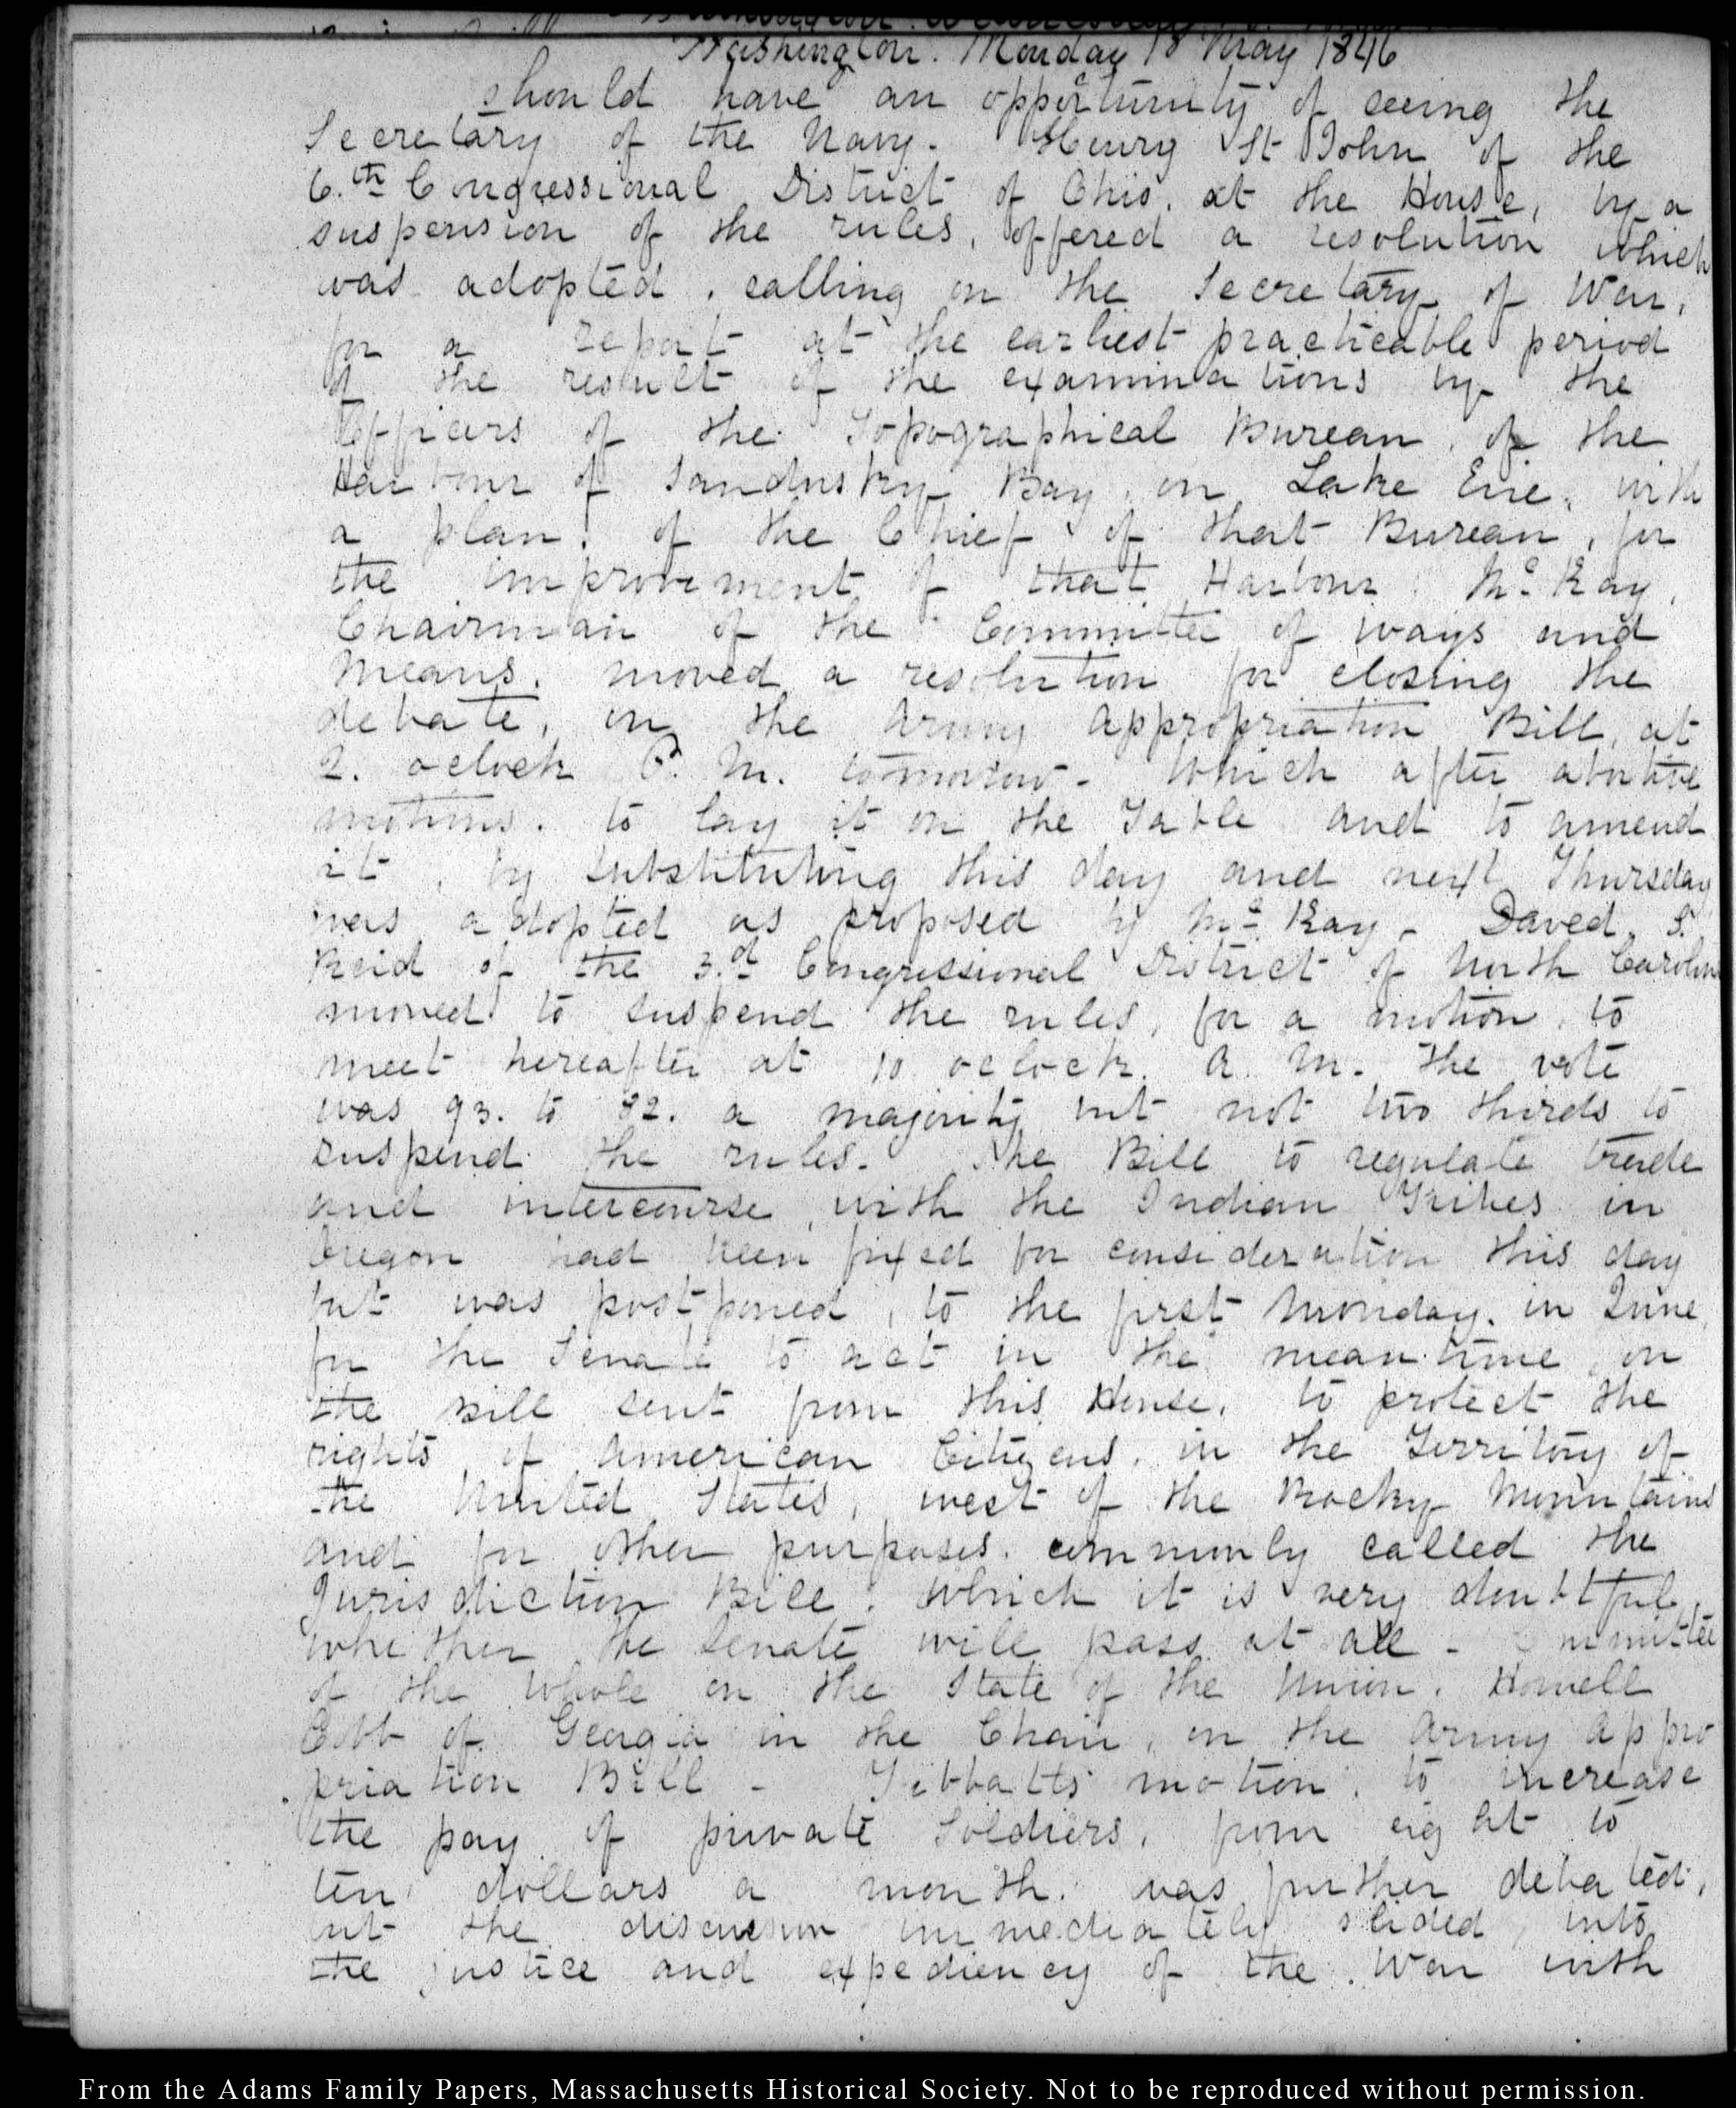 Washington. Monday 18 May 1846
should have an opportunity of seeing the
Secretary of the Navy. Henry St John of the
6.th Congressional District of Ohio, at the House, by a
suspension of the rules, offered a resolution which
was adopted, calling on the Secretary of War,
for a report at the earliest practicable period
of the result of the examinations by the
Officers of the Topographical Bureau, of the
Harbour of Sandusky Bay, on Lake Erie, with
a plan, of the Chief of that Bureau, for
the improvement of that Harbour. Mc Kay,
Chairman of the Committee of ways and
means, moved a resolution for closing the
debate, on the Army Appropriation Bill, at
2. oclock P. M. tomorrow. Which after abortive
motions. to lay it on the Table and to amend
it, by substituting this day and next Thursday
was adopted as proposed by Mc Kay. David. S.
Reid of the 3.d Congressional District of North Carolina
moved to suspend the rules, for a motion, to
meet hereafter at 10 oclock. A. M. The vote
was 93. to 82. a majority but not two thirds to
suspend the rules. The Bill to regulate trade
and intercourse with the Indian Tribes in
Oregon had been fixed for consideration this day
but was postponed, to the first Monday. in June,
for the Senate to act in the mean time, on
the Bill sent from this House, to protect the
rights of American Citizens, in the Territory of
the United States, west of the Rocky Mountains
and for other purposes. commonly called the
Jurisdiction Bill. Which it is very doubtful,
whether the Senate will pass at all - Committee
of the Whole on the State of the Union. Howell
Cobb of Georgia in the Chair, on the Army Appro
priation Bill - Tibbatts' motion, to increase
the pay of private Soldiers, from eight to
ten dollars a month. was further debated,
but the discussion immediately slided into
the justice and expediency of the War with
From the Adams Family Papers, Massachusetts Historical Society. Not to be reproduced without permission.